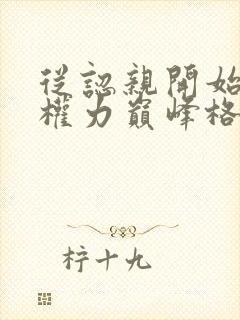 從認親開始
權力巔峰格
柠十九